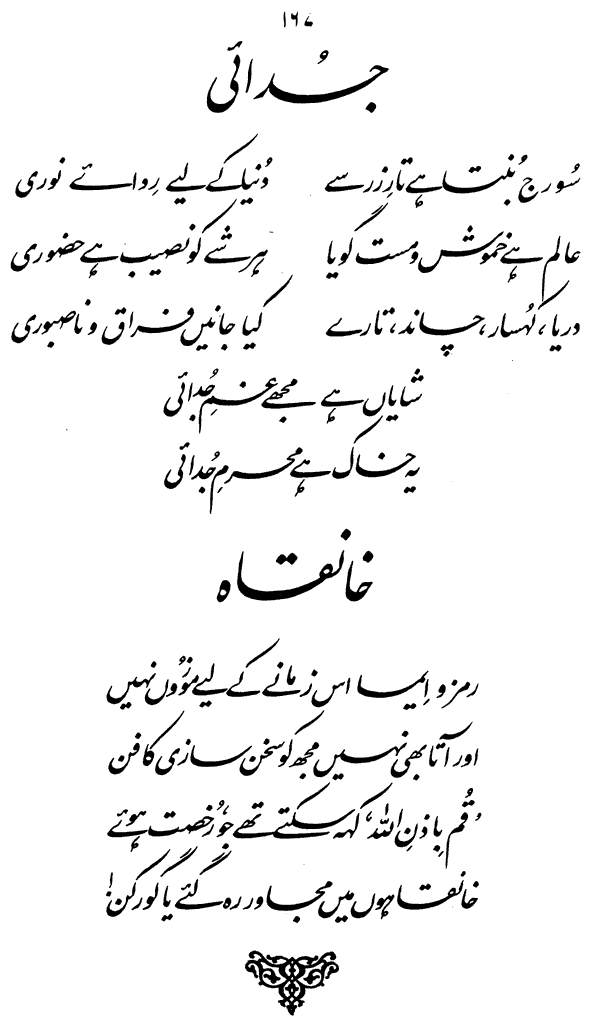 ۱۶۷
جُدائی
سُورج بُنتا ہے تارِ زر سے    دُنیا کے لیے رِدائے نوری
عالم ہے خموش و مست گویا    ہر شے کو نصیب ہے حضوری
دریا، کُہسار، چاند، تارے    کیا جانیں فراق و ناصبوری
شایاں ہے مجھے غمِ جُدائی
یہ خاک ہے محرمِ جُدائی
خانقاہ
رمز و اِیما اس زمانے کے لیے موزُوں نہیں
اور آتا بھی نہیں مجھ کو سخن سازی کا فن
’قُم بِاذنِ اللہ‘ کہہ سکتے تھے جو، رُخصت ہوئے
خانقاہوں میں مجاور رہ گئے یا گورکن!